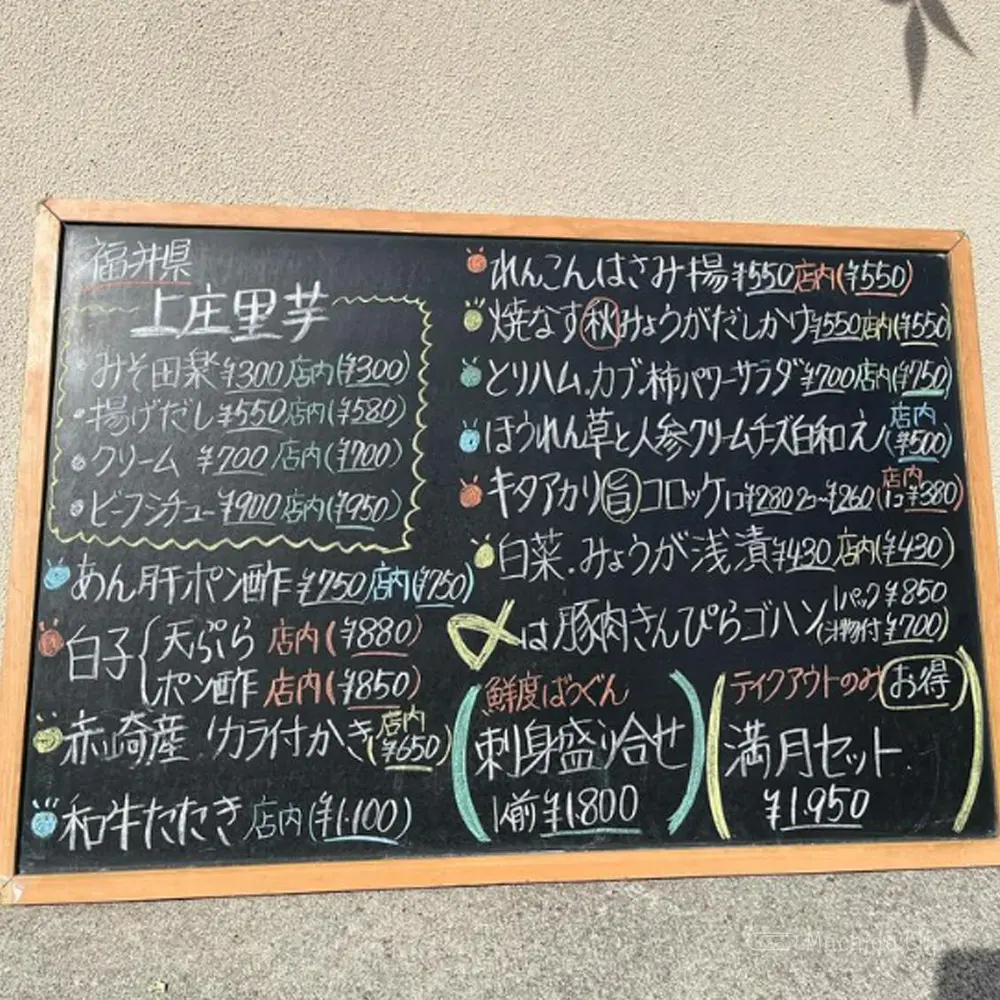 福井県
上庄里芋
・みそ田楽 ¥300 店内(¥300)
・揚げだし ¥550 店内(¥580)
・クリーム ¥700 店内(¥700)
・ビーフシチュー ¥900 店内(¥950)
あん肝ポン酢 ¥750 店内(¥750)
白子{天ぷら 店内(¥880)
ポン酢 店内(¥850)
赤崎産 カラ付かき(店内¥650)
和牛たたき 店内(¥1.100)
れんこんはさみ揚 ¥550 店内(¥550)
焼なす秋みょうがだしかけ ¥550 店内(¥550)
とりハム.カブ.柿パワーサラダ ¥700 店内(¥750)
ほうれん草と人参クリームチーズ白和え(店内¥500)
キタアカリ旨コロッケ 1コ¥280 2コ〜¥260 (店内1コ¥380)
白菜.みょうが浅漬 ¥430 店内(¥430)
〆は豚肉きんぴらゴハン 1パック¥850
(汁物付¥700)
鮮度ばつぐん
刺身盛り合せ
1人前 ¥1.800
テイクアウトのみ お得
満月セット
¥1.950